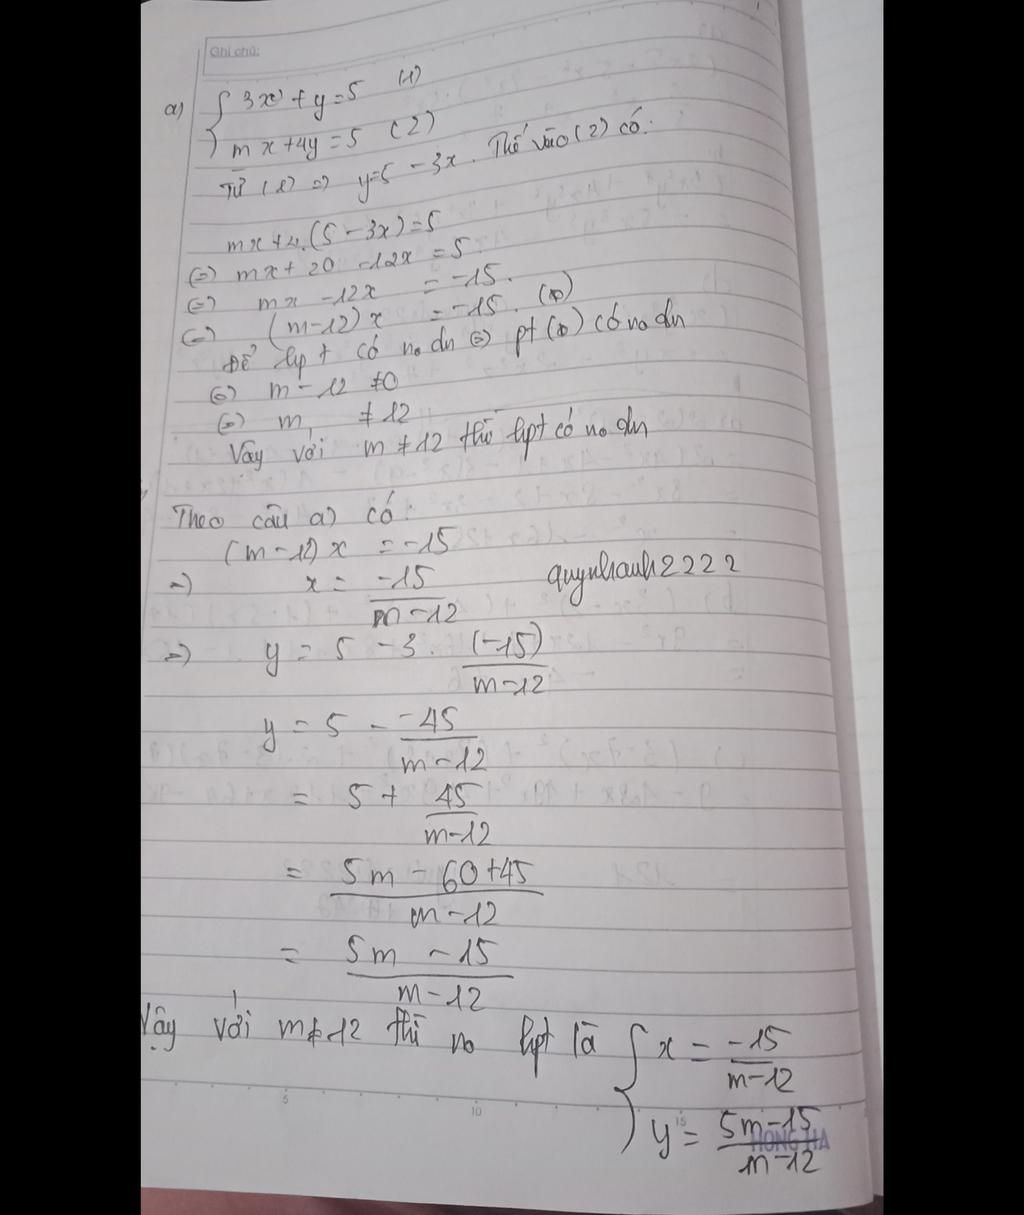 Ghi chú:
a) { 3x + y = 5 (1)
mx + 4y = 5 (2)
Từ (1) => y = 5 - 3x. Thế vào (2) có:
mx + 4.(5 - 3x) = 5
(=) mx + 20 - 12x = 5
(=) mx - 12x = -15.
(=) (m-12)x = -15. (*)
Để hpt có no dn (=) pt (*) có no dn
(=) m - 12 ≠ 0
(=) m ≠ 12
Vậy với m ≠ 12 thì hpt có no dn
Theo câu a) có:
(m - 12) x = -15
=) x = \frac{-15}{m-12}
quynhanh2222
=) y = 5 - 3 . \frac{(-15)}{m-12}
y = 5 - \frac{-45}{m-12}
= 5 + \frac{45}{m-12}
= \frac{5m - 60 + 45}{m-12}
= \frac{5m - 15}{m-12}
Vậy với m ≠ 12 thì no hpt là { x = \frac{-15}{m-12}
y = \frac{5m-15}{m-12}
5 10 15
HONG HA